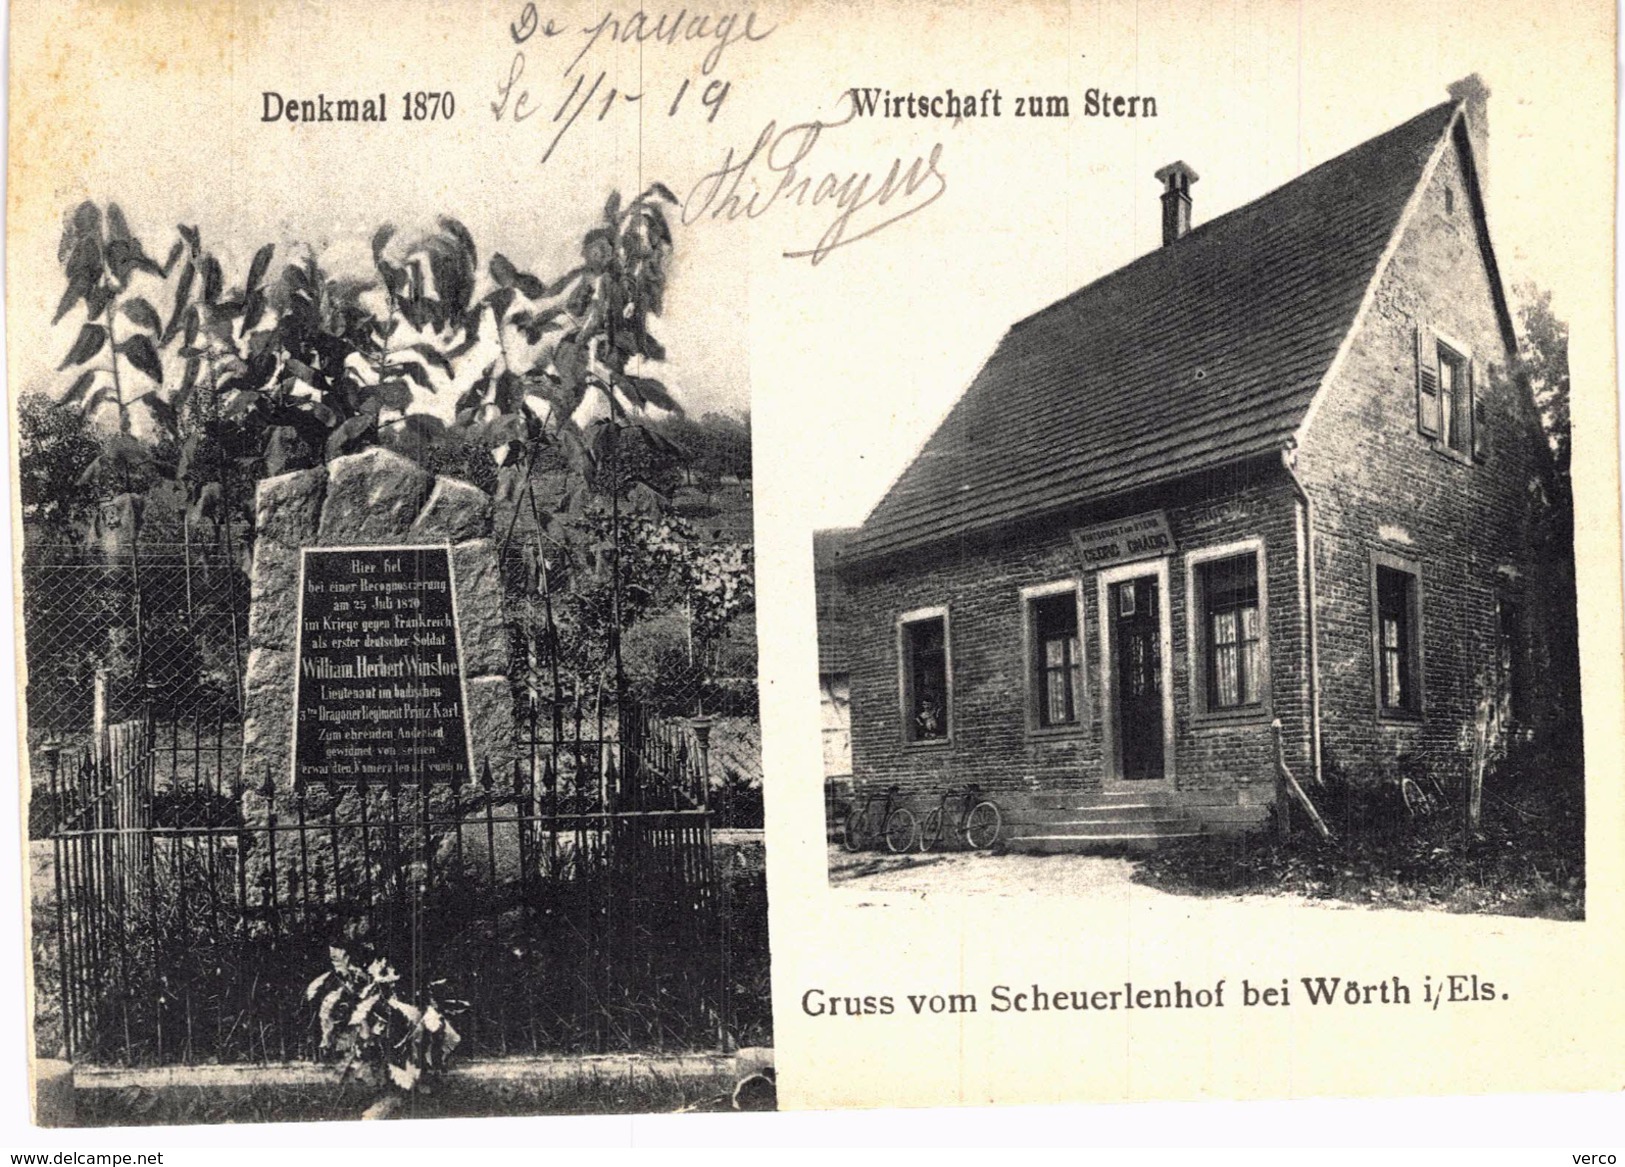 De passage
Le 1/1-19
Denkmal 1870
Wirtschaft zum Stern
Hier fiel
bei einer Recognoscierung
am 25 Juli 1870
im Kriege gegen Frankreich
als erster deutscher Soldat
William Herbert Winsloe
Lieutenant im badischen
3ten Dragoner Regiment Prinz Karl.
Zum ehrenden Andenken
gewidmet von seinen
Kameraden
WIRTSCHAFT ZUM STERN
GEORG
Gruss vom Scheuerlenhof bei Wörth i/Els.
delcampe.net
verco